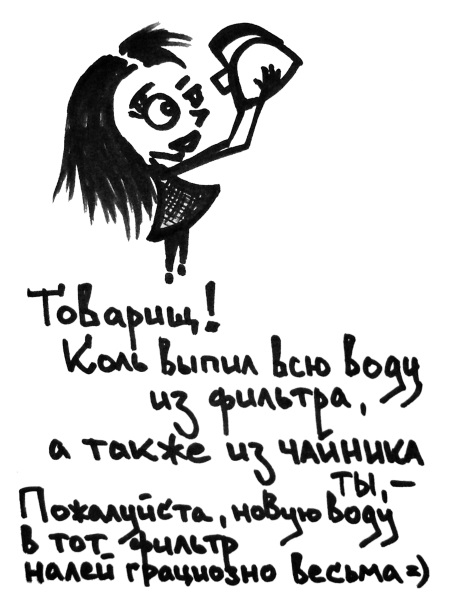 Товарищ!
Коль выпил всю воду
из фильтра,
а также из ЧАЙНИКА
ты,–
Пожалуйста, новую воду
в тот фильтр
налей грациозно весьма=)